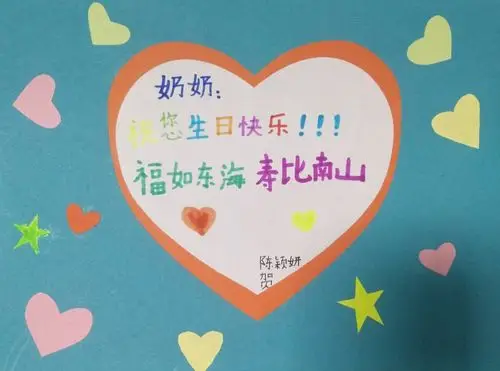 奶奶：
祝您生日快乐！！！
福如东海 寿比南山
陈颖妍
贺